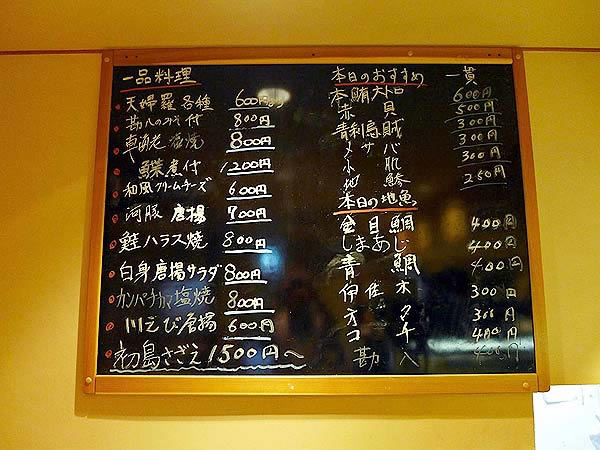 一品料理
天婦羅各種 600円より
勘八のみそ付 800円
車海老塩焼 800円
煮付 1200円
和風クリームチーズ 600円
河豚唐揚 700円
鮭ハラス焼 800円
白身唐揚サラダ 800円
カンパチカマ塩焼 800円
川えび唐揚 600円
初島さざえ 1500円〜
本日のおすすめ 一貫
本鮪大トロ 600円
赤貝 500円
青利烏賊 300円
〆サバ 300円
小肌 300円
地鯵 250円
本日の地魚
金目鯛 400円
しまあじ 400円
青鯛 400円
伊佐木 300円
方々 300円
タチ 400円
勘八 400円